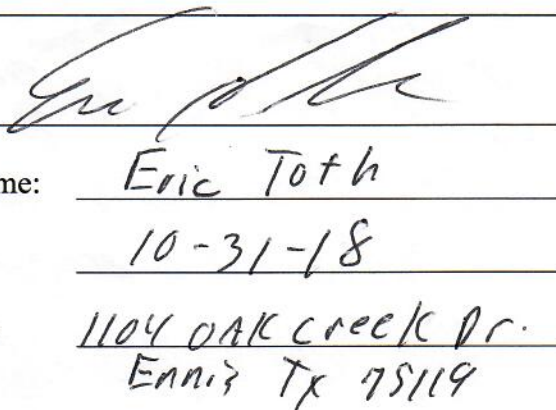 me: Eric Toth
10-31-18
1104 OAK Creek Dr.
Ennis Tx 75119